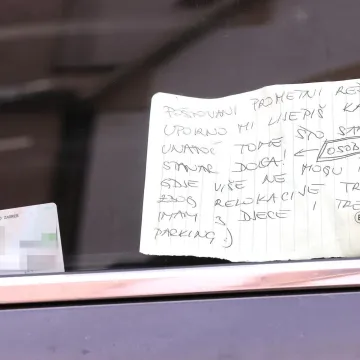 POŠTOVANI PROMETNI REŽ
UPORNO MI LIJEPIŠ KA
UNATOČ TOME ŠTO SAM
STANAR OVOGA! ← OSOB
GDJE VIŠE NE MOGU
ZBOG RELOKACIJE TR
IMAM 3 DJECE I TRE
PARKING :)